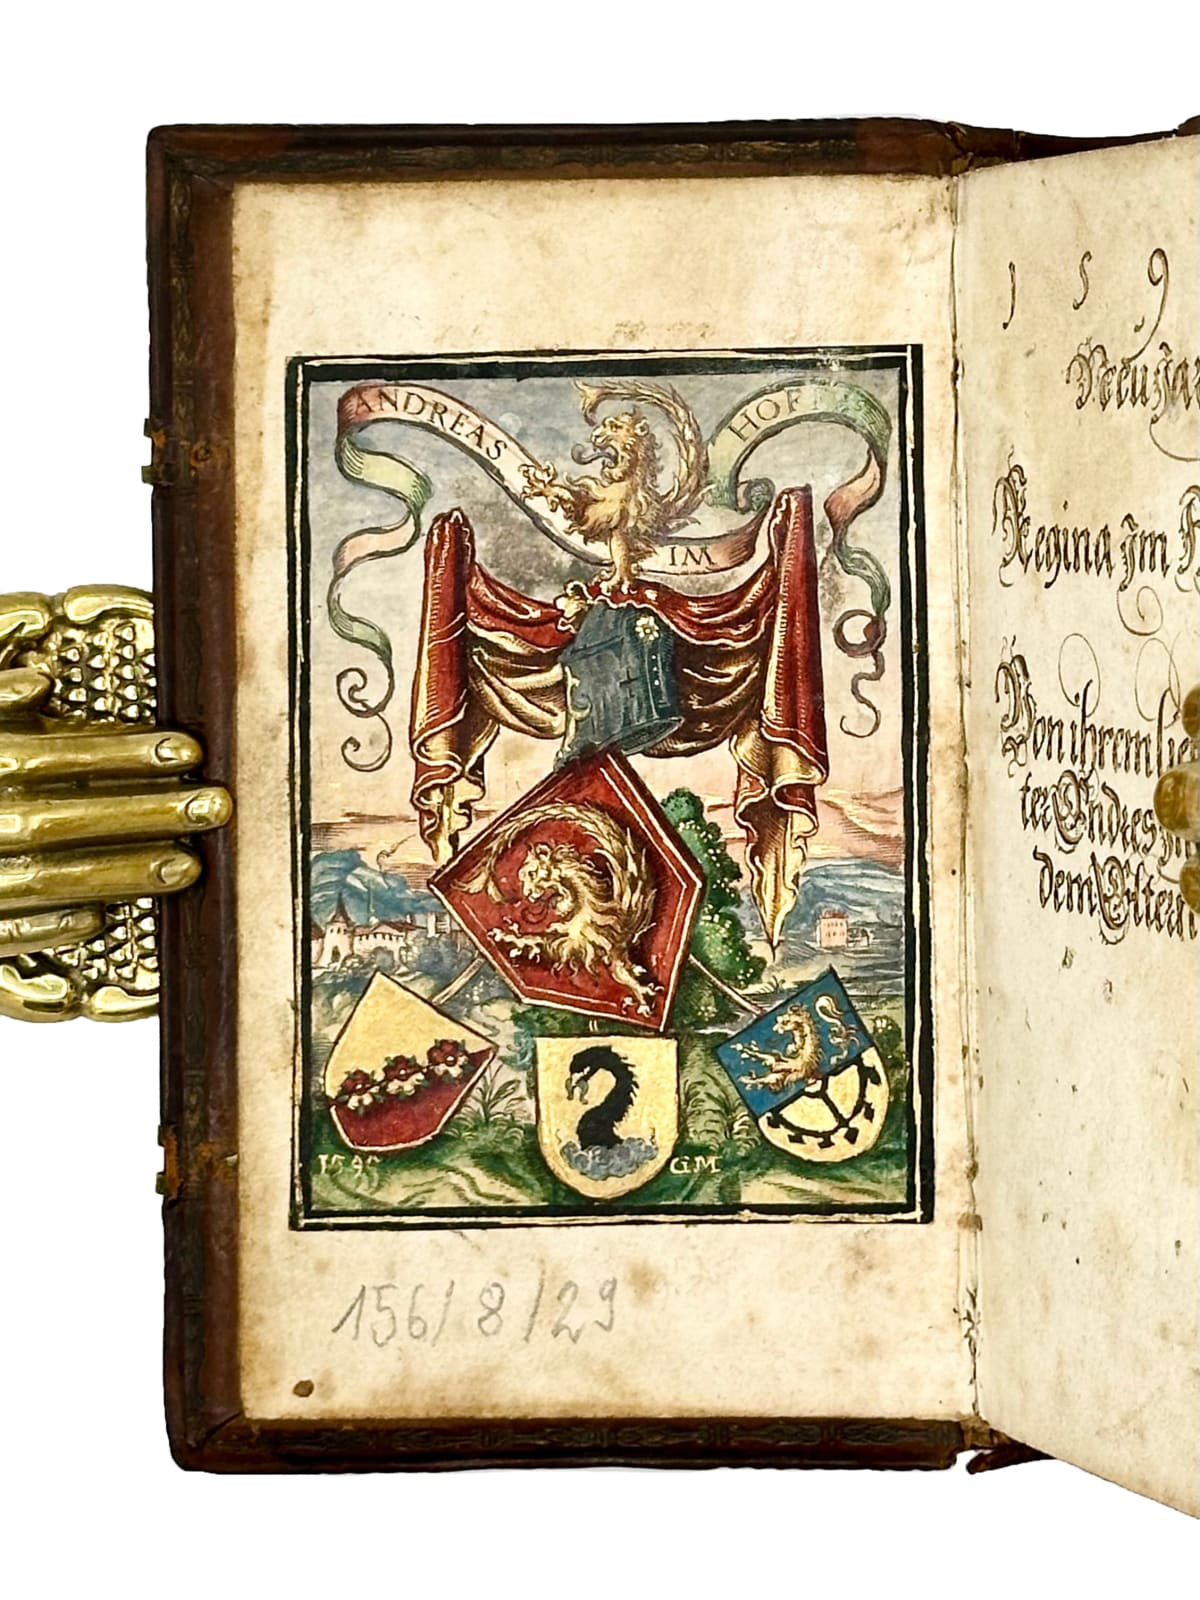 ANDREAS
IM
HOF
GM
156/8/29
1 5 9
Neu Jar
Regina Im H
Von ihrem lie
ter Endres Im
dem Eltern